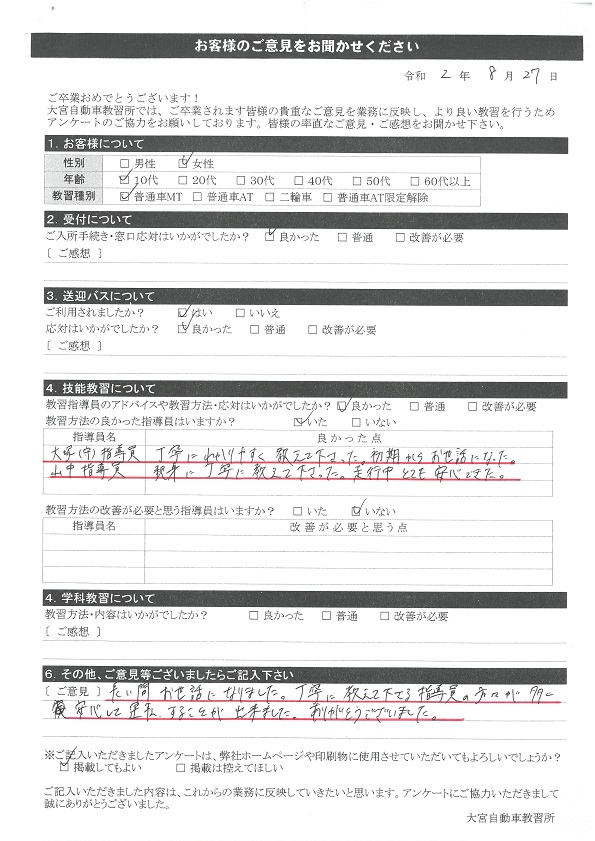 お客様のご意見をお聞かせください
令和 2 年 8 月 27 日
ご卒業おめでとうございます！
大宮自動車教習所では、ご卒業されます皆様の貴重なご意見を業務に反映し、より良い教習を行うため
アンケートのご協力をお願いしております。皆様の率直なご意見・ご感想をお聞かせ下さい。
1. お客様について
性別 □ 男性 ☑ 女性
年齢 ☑ 10代 □ 20代 □ 30代 □ 40代 □ 50代 □ 60代以上
教習種別 ☑ 普通車MT □ 普通車AT □ 二輪車 □ 普通車AT限定解除
2. 受付について
ご入所手続き・窓口応対はいかがでしたか？ ☑ 良かった □ 普通 □ 改善が必要
［ ご感想 ］
3. 送迎バスについて
ご利用されましたか？ ☑ はい □ いいえ
応対はいかがでしたか？ ☑ 良かった □ 普通 □ 改善が必要
［ ご感想 ］
4. 技能教習について
教習指導員のアドバイスや教習方法・応対はいかがでしたか？ ☑ 良かった □ 普通 □ 改善が必要
教習方法の良かった指導員はいますか？ ☑ いた □ いない
指導員名 良かった点
大塚(守)指導員 丁寧にわかりやすく教えて下さった。初期からお世話になった。
山中指導員 親身に丁寧に教えて下さった。走行中とても安心できた。
教習方法の改善が必要と思う指導員はいますか？ □ いた ☑ いない
指導員名 改善が必要と思う点
4. 学科教習について
教習方法・内容はいかがでしたか？ □ 良かった □ 普通 □ 改善が必要
［ ご感想 ］
6. その他、ご意見等ございましたらご記入下さい
［ ご意見 ］ 長い間お世話になりました。丁寧に教えて下さる指導員の方々が多く
安心して運転することが出来ました。ありがとうございました。
※ご記入いただきましたアンケートは、弊社ホームページや印刷物に使用させていただいてもよろしいでしょうか？
☑ 掲載してもよい □ 掲載は控えてほしい
ご記入いただきました内容は、これからの業務に反映していきたいと思います。アンケートにご協力いただきまして
誠にありがとうございました。
大宮自動車教習所